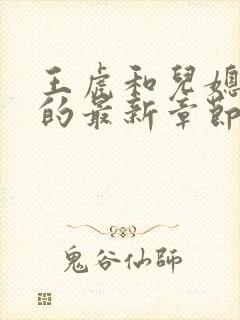 王虎和兒媳
的最新章節
鬼谷仙師